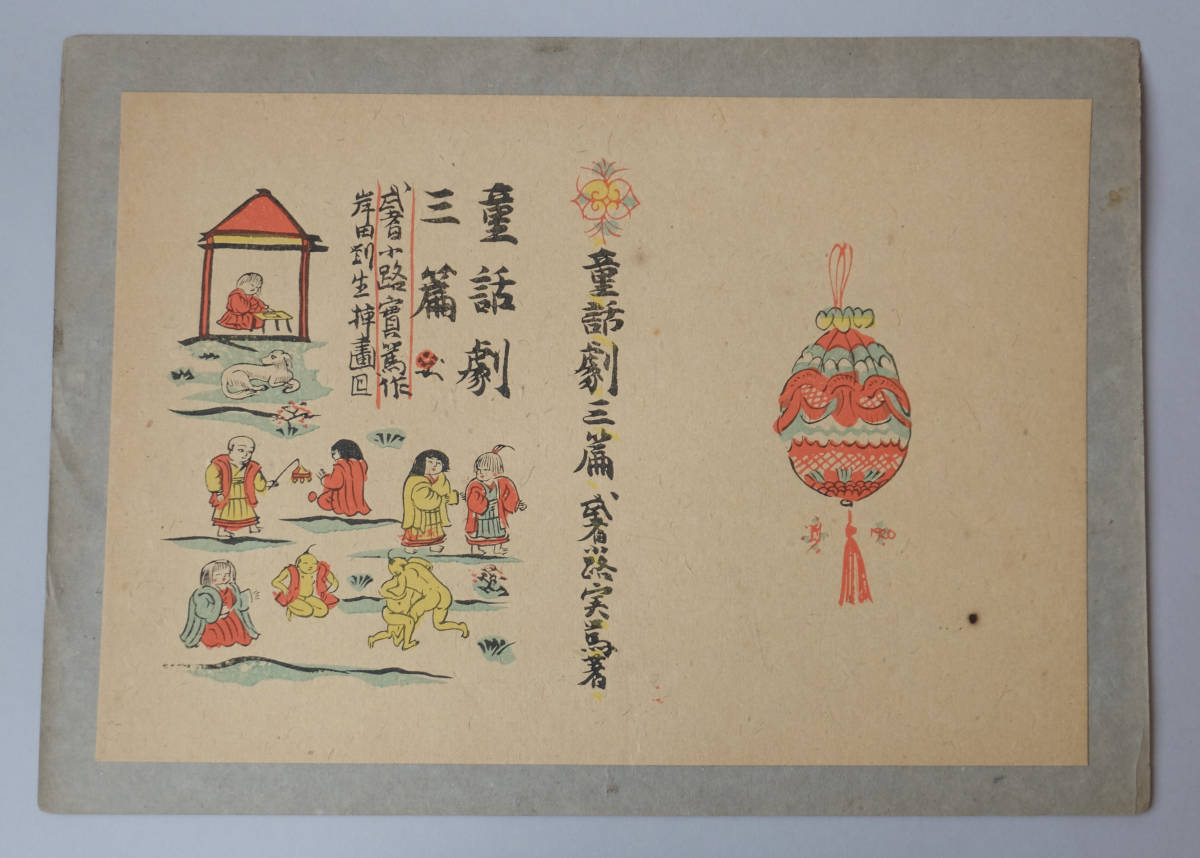 童話劇
三篇
武者小路實篤作
岸田劉生挿畫
童話劇三篇 武者小路実篤著
1920